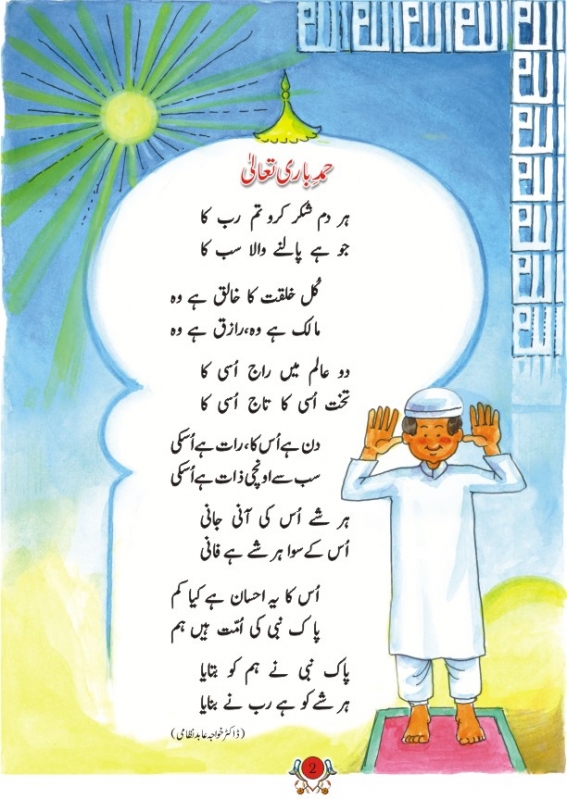 حمدِ باری تعالیٰ
ہر دم شکر کرو تم رب کا
جو ہے پالنے والا سب کا
کُل خلقت کا خالق ہے وہ
مالک ہے وہ، رازق ہے وہ
دو عالم میں راج اُسی کا
تخت اُسی کا تاج اُسی کا
دن ہے اُس کا، رات ہے اُسکی
سب سے اونچی ذات ہے اُسکی
ہر شے اُس کی آنی جانی
اُس کے سوا ہر شے ہے فانی
اُس کا یہ احسان ہے کیا کم
پاک نبی کی اُمّت ہیں ہم
پاک نبی نے ہم کو بتایا
ہر شے کو ہے رب نے بنایا
(ڈاکٹر خواجہ عابد نظامی)
2